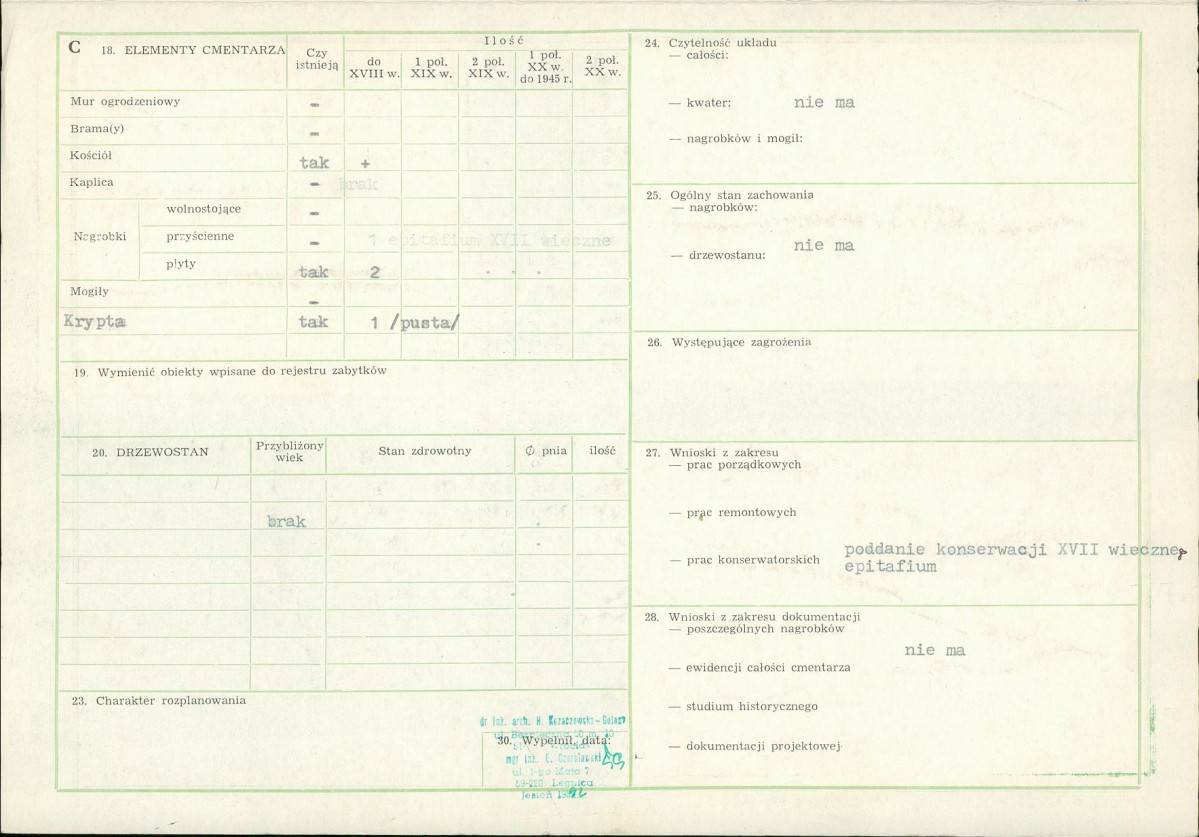 C 18. ELEMENTY CMENTARZA
Czy istnieją
Ilość
do XVIII w.
1 poł. XIX w.
2 poł. XIX w.
1 poł. XX w. do 1945 r.
2 poł. XX w.
Mur ogrodzeniowy -
Brama(y) -
Kościół tak +
Kaplica - brak
Nagrobki
wolnostojące -
przyścienne - 1 epitafium XVII wieczne
płyty tak 2
Mogiły -
Krypta tak 1 /pusta/
19. Wymienić obiekty wpisane do rejestru zabytków
20. DRZEWOSTAN
Przybliżony wiek
Stan zdrowotny
Ø pnia
ilość
brak
23. Charakter rozplanowania
30. Wypełnił, data:
dr inż. arch. H.
mgr inż. E.
ul. 1-go Maja 7
59-220 Legnica
jesień
24. Czytelność układu
— całości:
— kwater: nie ma
— nagrobków i mogił:
25. Ogólny stan zachowania
— nagrobków:
nie ma
— drzewostanu:
26. Występujące zagrożenia
27. Wnioski z zakresu
— prac porządkowych
— prac remontowych
— prac konserwatorskich poddanie konserwacji XVII wiecznego
epitafium
28. Wnioski z zakresu dokumentacji
— poszczególnych nagrobków
nie ma
— ewidencji całości cmentarza
— studium historycznego
— dokumentacji projektowej